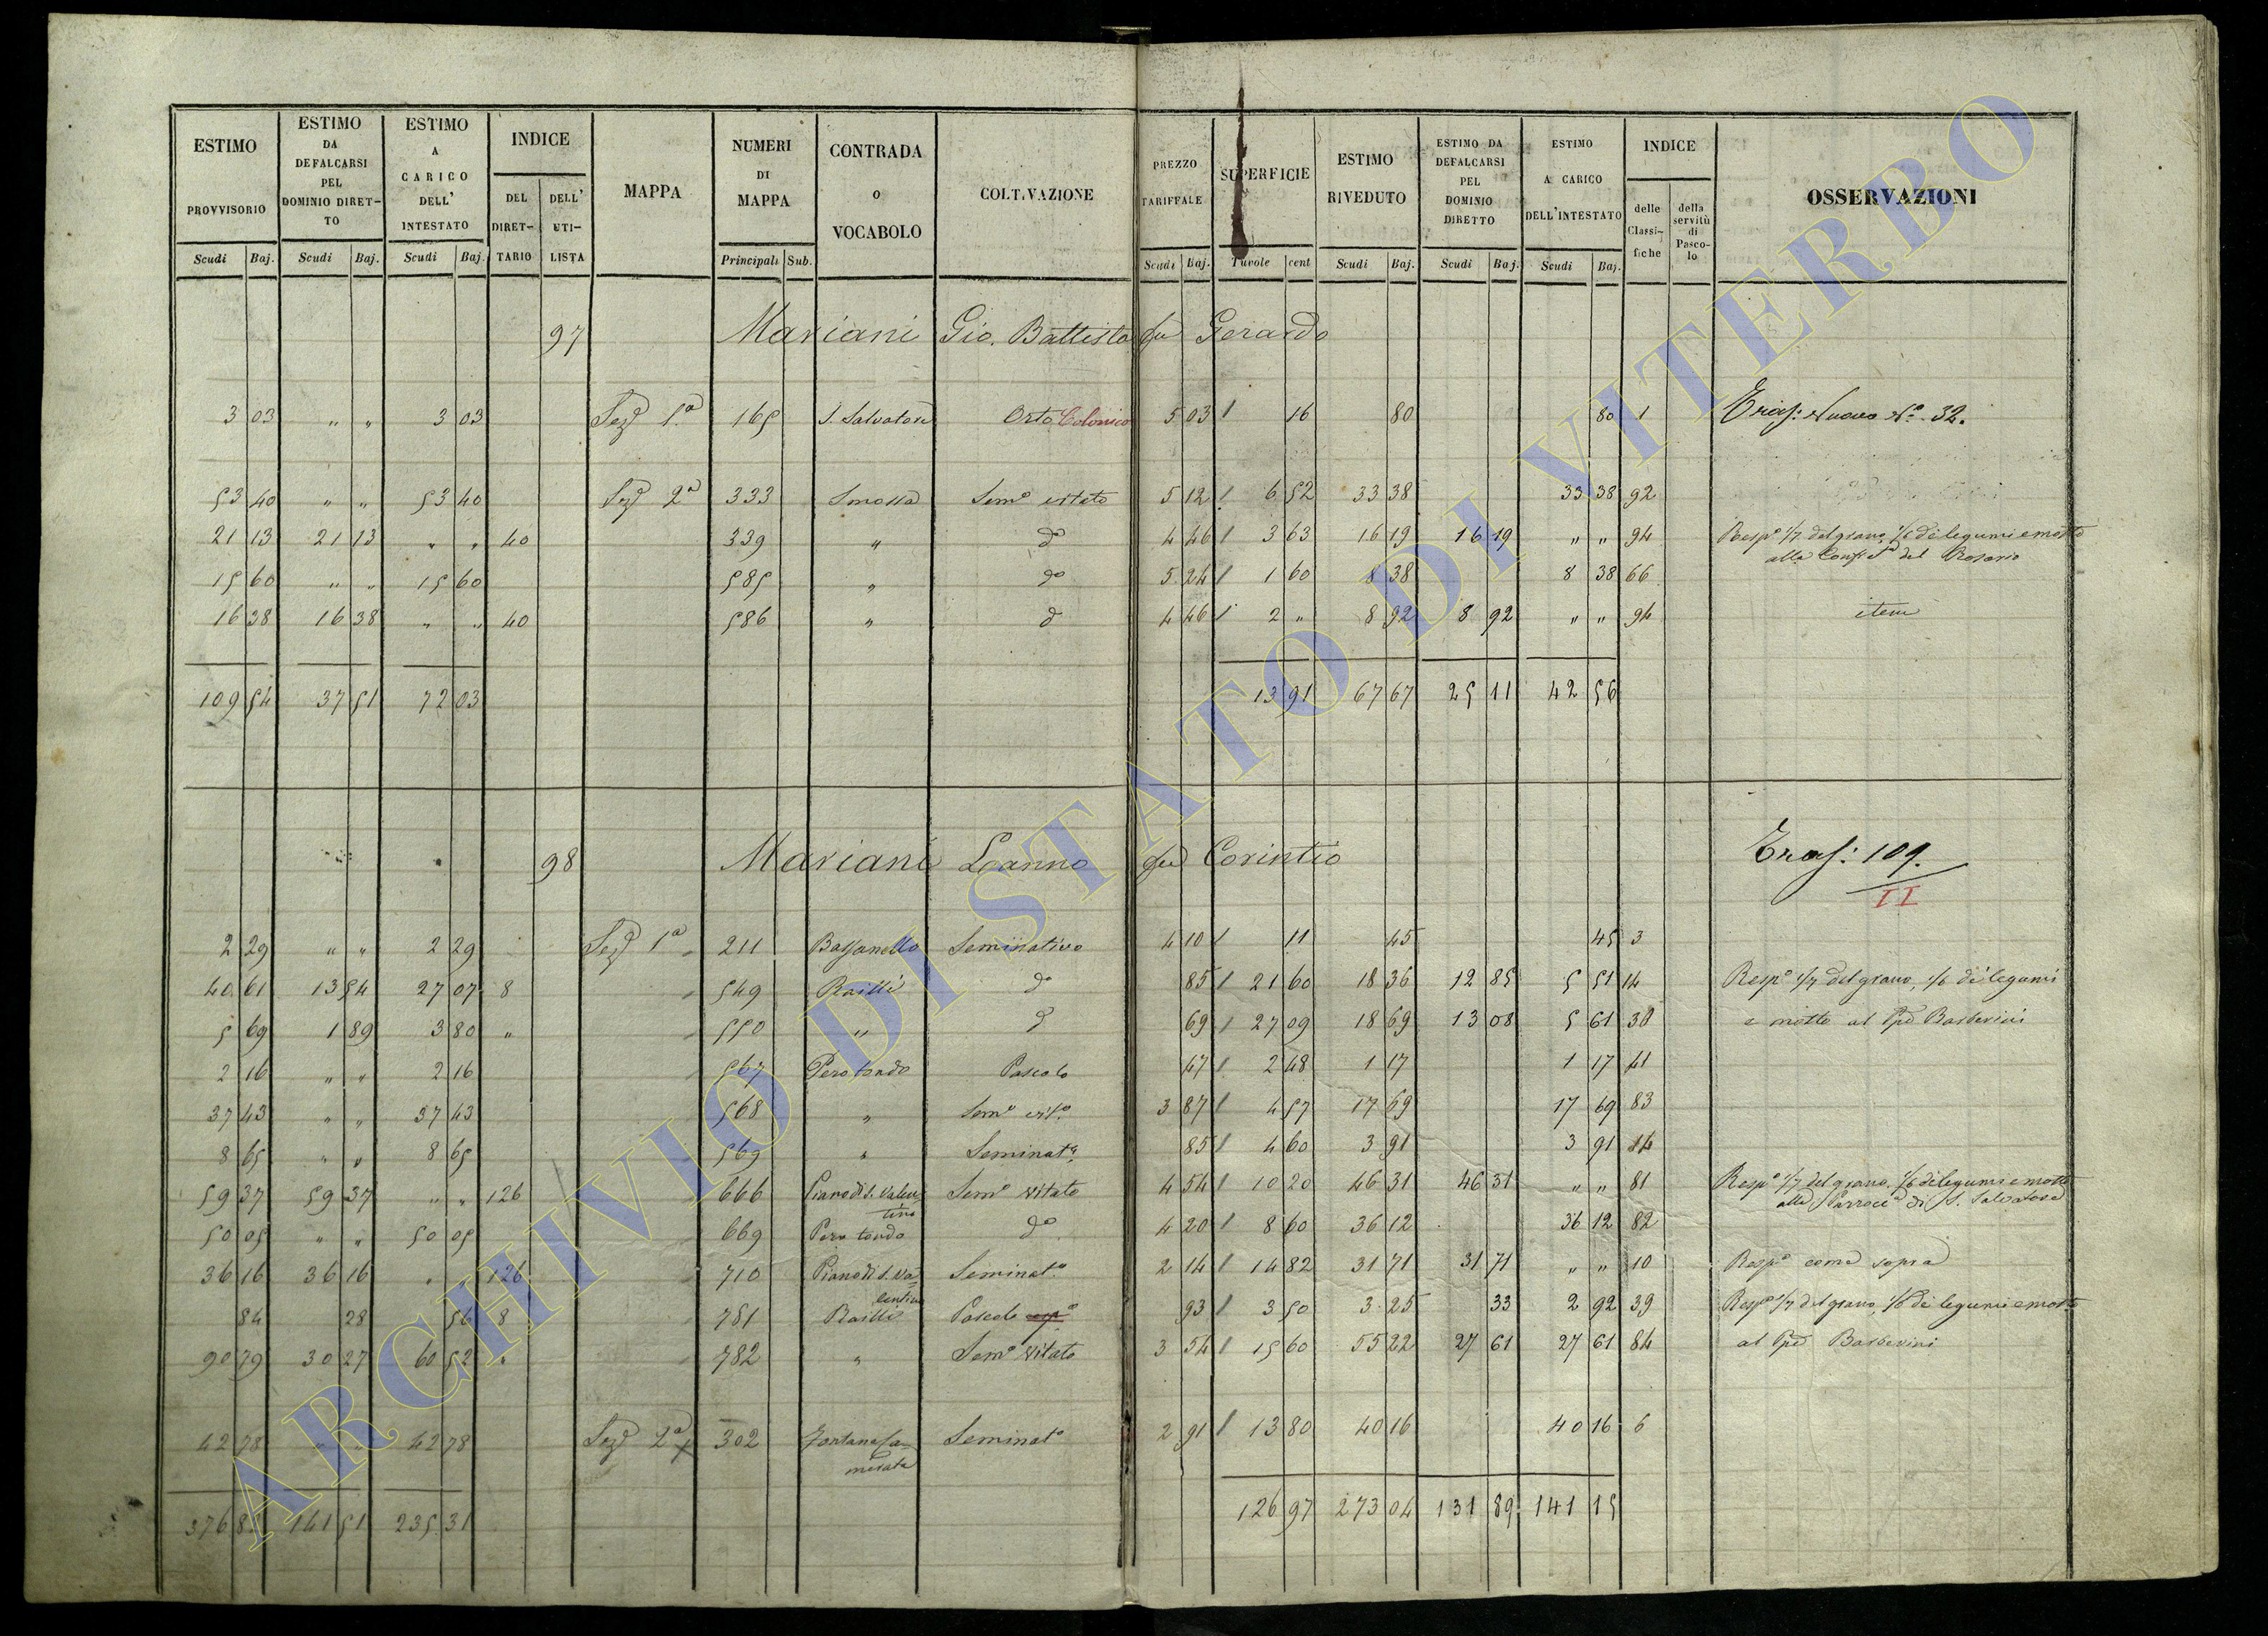 ESTIMO PROVVISORIO Scudi Baj. ESTIMO DA DEFALCARSI PEL DOMINIO DIRETTO Scudi Baj. ESTIMO A CARICO DELL' INTESTATO Scudi Baj. INDICE DEL DIRETTARIO DELL' UTILISTA MAPPA NUMERI DI MAPPA Principali Sub. CONTRADA O VOCABOLO COLTIVAZIONE PREZZO TARIFFALE Scudi Baj. SUPERFICIE Tavole cent ESTIMO RIVEDUTO Scudi Baj. ESTIMO DA DEFALCARSI PEL DOMINIO DIRETTO Scudi Baj. ESTIMO A CARICO DELL'INTESTATO Scudi Baj. INDICE delle Classifiche della servitù di Pascolo OSSERVAZIONI
97 Mariani Gio. Battista fu Gerardo
3 03 " " 3 03 Sez. 1a 165 S. Salvatore Orto Colonico 5 03 / 16 80 80 1 Trasf: Nuovo No. 32.
53 40 " " 53 40 Sez. 2a 333 Smossa Semo vitato 5 12 / 6 52 33 38 33 38 92
21 13 21 13 " " 40 339 " do 4 46 / 3 63 16 19 16 19 " " 94 Respo 1/7 del grano, 1/6 di legumi e mosto
alla Confrta del Rosario
15 60 " " 15 60 585 " do 5 24 / 1 60 8 38 8 38 66
16 38 16 38 " " 40 586 " do 4 46 / 2 " 8 92 8 92 " " 94 item
109 54 37 51 72 03 13 91 67 67 25 11 42 56
98 Mariani Leanno fu Corintio Trasf: 109.
II
2 29 " " 2 29 Sez. 1a 211 Bassanello Seminativo 4 10 / 11 45 45 3
40 61 13 54 27 07 8 549 Railli do 85 / 21 60 18 36 12 85 5 51 14 Respo 1/7 del grano, 1/6 di legumi
5 69 1 89 3 80 " 550 " do 69 / 27 09 18 69 13 08 5 61 38 e mosto al Ppe Barberini
2 16 " " 2 16 567 Perotondo Pascolo 47 / 2 48 1 17 1 17 41
37 43 " " 37 43 568 " Semo vito. 3 87 / 4 57 17 69 17 69 83
8 65 " " 8 65 569 " Seminato. 85 / 4 60 3 91 3 91 14
59 37 59 37 " " 126 666 Piano di S. Valentino Semo vitato 4 54 / 10 20 46 31 46 31 " " 81 Respo 1/7 del grano, 1/6 di legumi e mosto
alla Parrocca di S. Salvatore
50 05 " " 50 05 669 Pero tondo do 4 20 / 8 60 36 12 36 12 82
36 16 36 16 " 126 710 Piano di S. Valentino Seminato. 2 14 / 14 82 31 71 31 71 " " 10 Respo come sopra
84 28 56 8 781 Railli Pascolo 93 / 3 50 3 25 33 2 92 39 Respo 1/7 del grano, 1/6 di legumi e mosto
90 79 30 27 60 52 " 782 " Semo vitato 3 54 / 15 60 55 22 27 61 27 61 84 al Ppe Barberini
42 78 " " 42 78 Sez. 2a 302 Fontana Camerata Seminato 2 91 / 13 80 40 16 40 16 6
376 82 141 51 235 31 126 97 273 04 131 89 141 15
ARCHIVIO DI STATO DI VITERBO